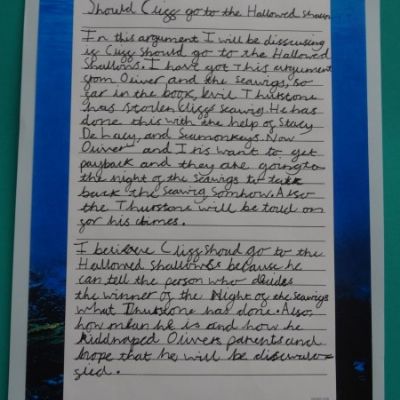 Should Cliggs go to the Hallowed shallows
In this argument I will be disscusing
is Cliggs should go to the Hallowed
Shallows. I have got This argument
from Oliver and the Seawigs, so
far in the book, evil Thurlstone
has stolen Cliggs seawig. He has
done this with the help of Stacy
De Lacy, and Seamonkeys. Now
Oliver and Iris want to get
payback and they are going to
the night of the Seawigs to take
back the seawig somhow. Also
the Thurstone will be tould on
for his crimes.
I believe Cliggs shoud go to the
Hallowed Shallows because he
can tell the person who decides
the winner of the Night of the seawigs
what Thurlstone has done. Also,
how mean he is and how he
kiddnaped Olivers parents and
hope that he will be